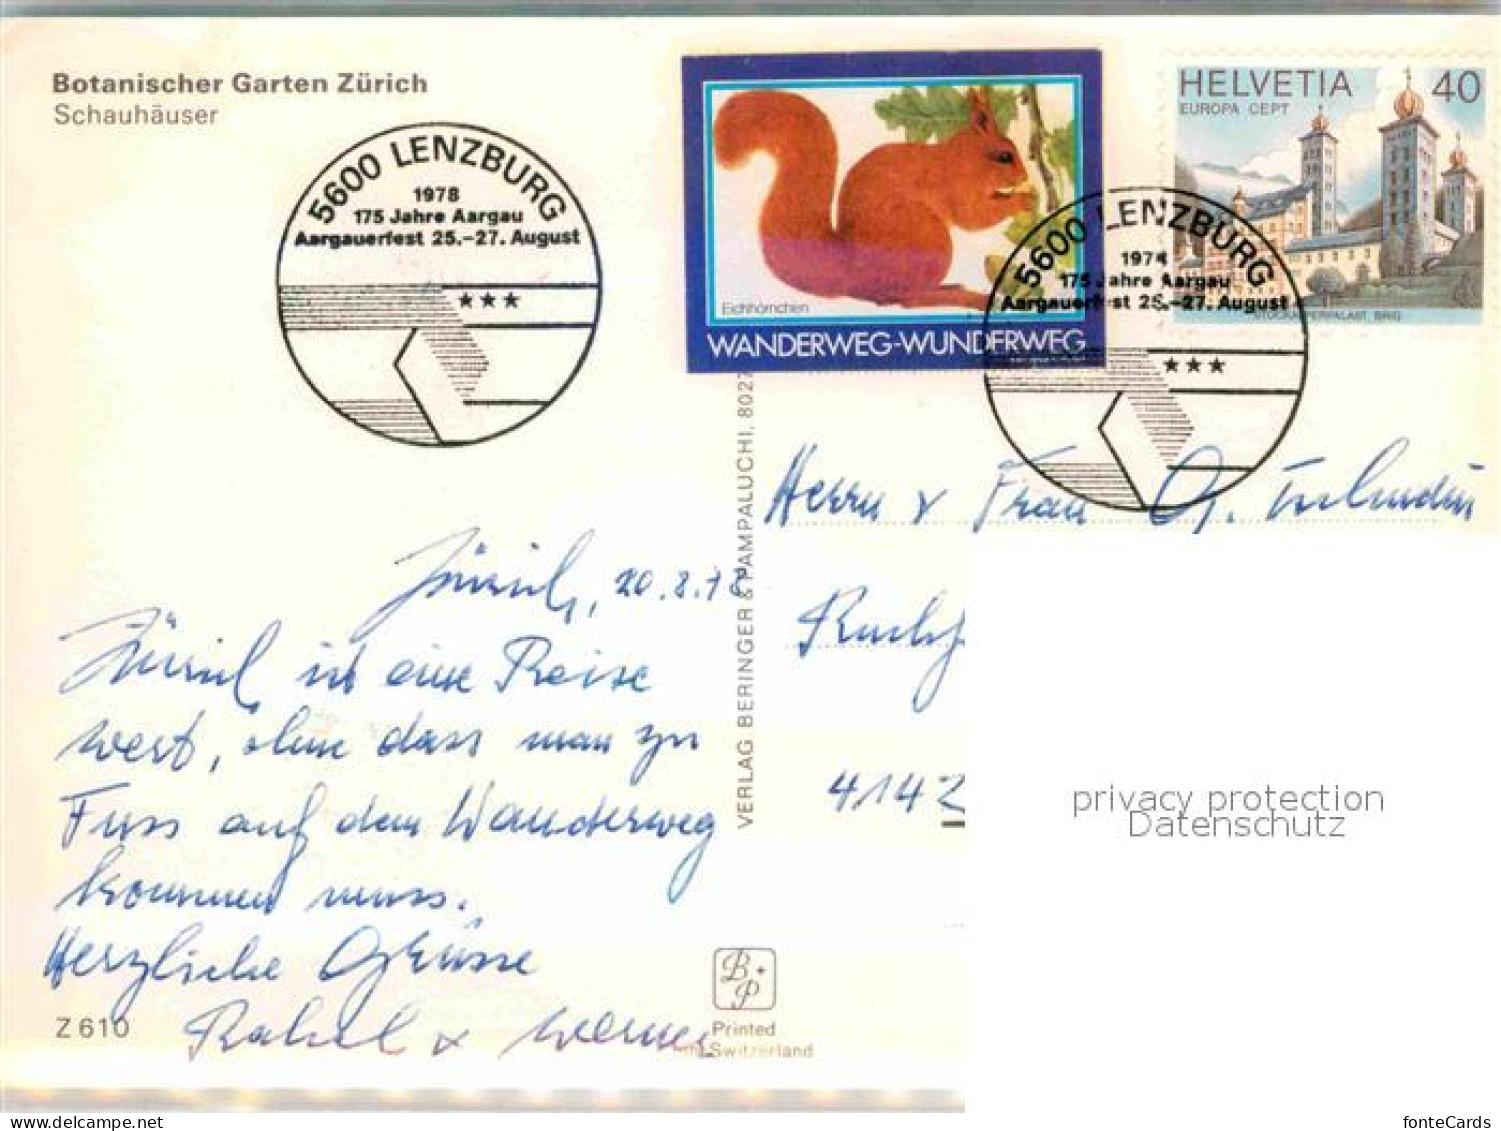 Botanischer Garten Zürich
Schauhäuser
5600 LENZBURG
1978
175 Jahre Aargau
Aargauerfest 25.–27. August
Eichhörnchen
WANDERWEG-WUNDERWEG
HELVETIA 40
EUROPA CEPT
STOCKALPERPALAST, BRIG
5600 LENZBURG
1978
175 Jahre Aargau
Aargauerfest 25.–27. August
Herrn & Frau
Zürich, 20.8.78
Zürich ist eine Reise
wert, ohne dass man zu
Fuss auf dem Wanderweg
kommen muss.
Herzliche Grüsse
Rahel & Werner
4142
VERLAG BERINGER & PAMPALUCHI, 8027
Z 610
B+P
Printed
in Switzerland
privacy protection
Datenschutz
fonteCards